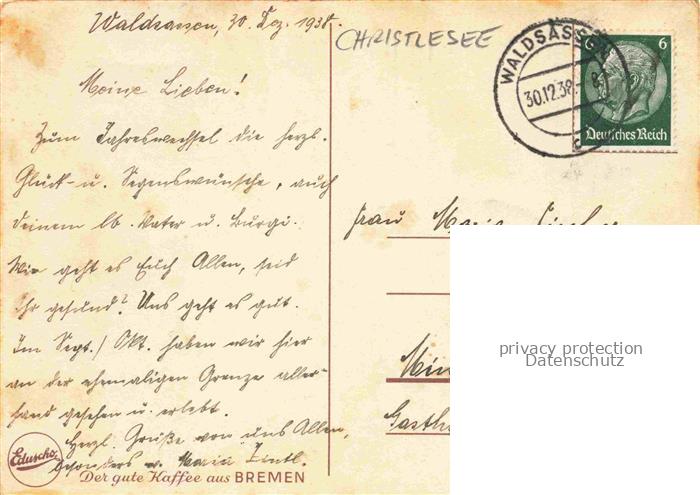 Waldsassen, 30. Dez. 1938.
CHRISTLESEE
WALDSASSEN
30.12.38
6
Deutsches Reich
Meine Lieben!
Zum Jahreswechsel die herzl.
Glück- u. Segenswünsche, auch
Deinem lb. Vater u. Burgi.
Wie geht es Euch Allen, seid
ihr gesund? Uns geht es gut.
Im Sept./Okt. haben wir hier
an der ehemaligen Grenze aller-
hand gesehen u. erlebt.
Herzl. Grüße von uns Allen,
besonders v. Maria Zintl.
Frau Maria
Gasth
privacy protection
Datenschutz
Eduscho
Der gute Kaffee aus BREMEN